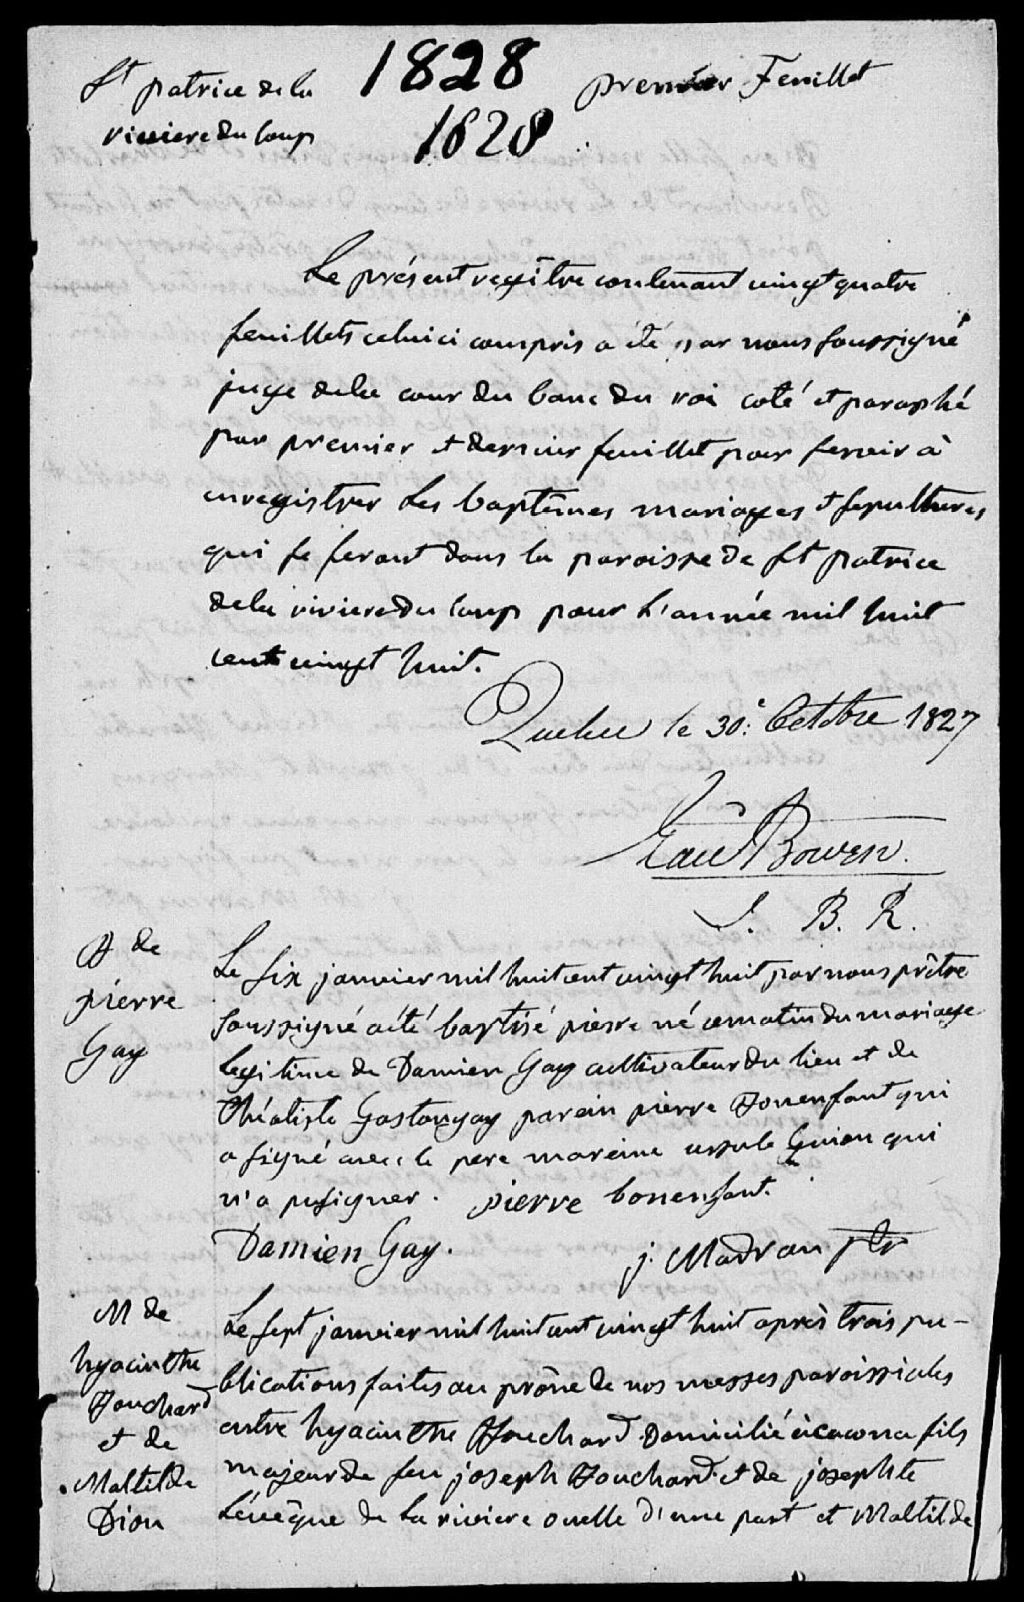 St patrice de la
riviere du loup
1828
1828
premier Feuillet
Le présent regître contenant vingt quatre
feuillets celui ci compris a été par nous soussigné
juge de la cour du banc du roi coté et paraphé
par premier et dernier feuillet pour servir à
enregistrer Les baptêmes mariages et sepultures
qui se feront dans la paroisse de St patrice
de la riviere du loup pour L'année mil huit
cent vingt huit.
Quebec le 30e. Octobre 1827
Edwd Bowen.
J. B. R.
B de
pierre
Gay
Le six janvier mil huit cent vingt huit par nous prêtre
soussigné a été baptisé pierre né ce matin du mariage
Legitime de Damien Gay cultivateur du lieu et de
Théotiste Gastonguay parain pierre Bonenfant qui
a signé avec le pere mareine ursule Guion qui
n'a pu signer. pierre bonenfant.
Damien Gay.
j. Madran ptr
M de
hyacinthe
Bouchard
et de
Maltilde
Dion
Le sept janvier mil huit cent vingt huit après trois pu-
blications faites au prône de nos messes paroissiales
entre hyacinthe Bouchard Domicilié à cacona fils
majeur de feu joseph Bouchard et de josephte
Lévêque de La riviere ouelle d'une part et Maltilde